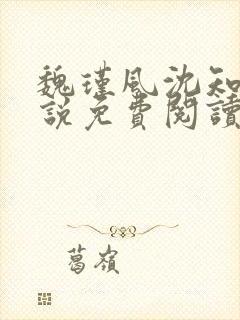 魏瑾風沈知
說免費閱讀
葛嶺